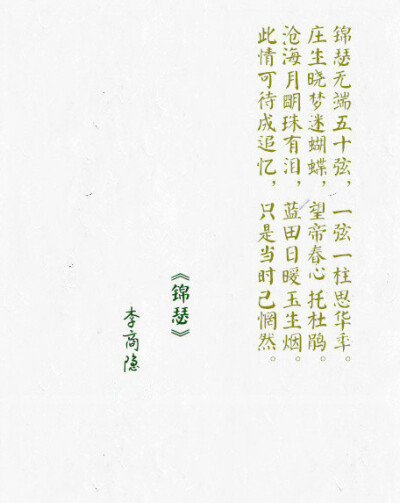 锦瑟无端五十弦，一弦一柱思华年。
庄生晓梦迷蝴蝶，望帝春心托杜鹃。
沧海月明珠有泪，蓝田日暖玉生烟。
此情可待成追忆，只是当时已惘然。
《锦瑟》
李商隐